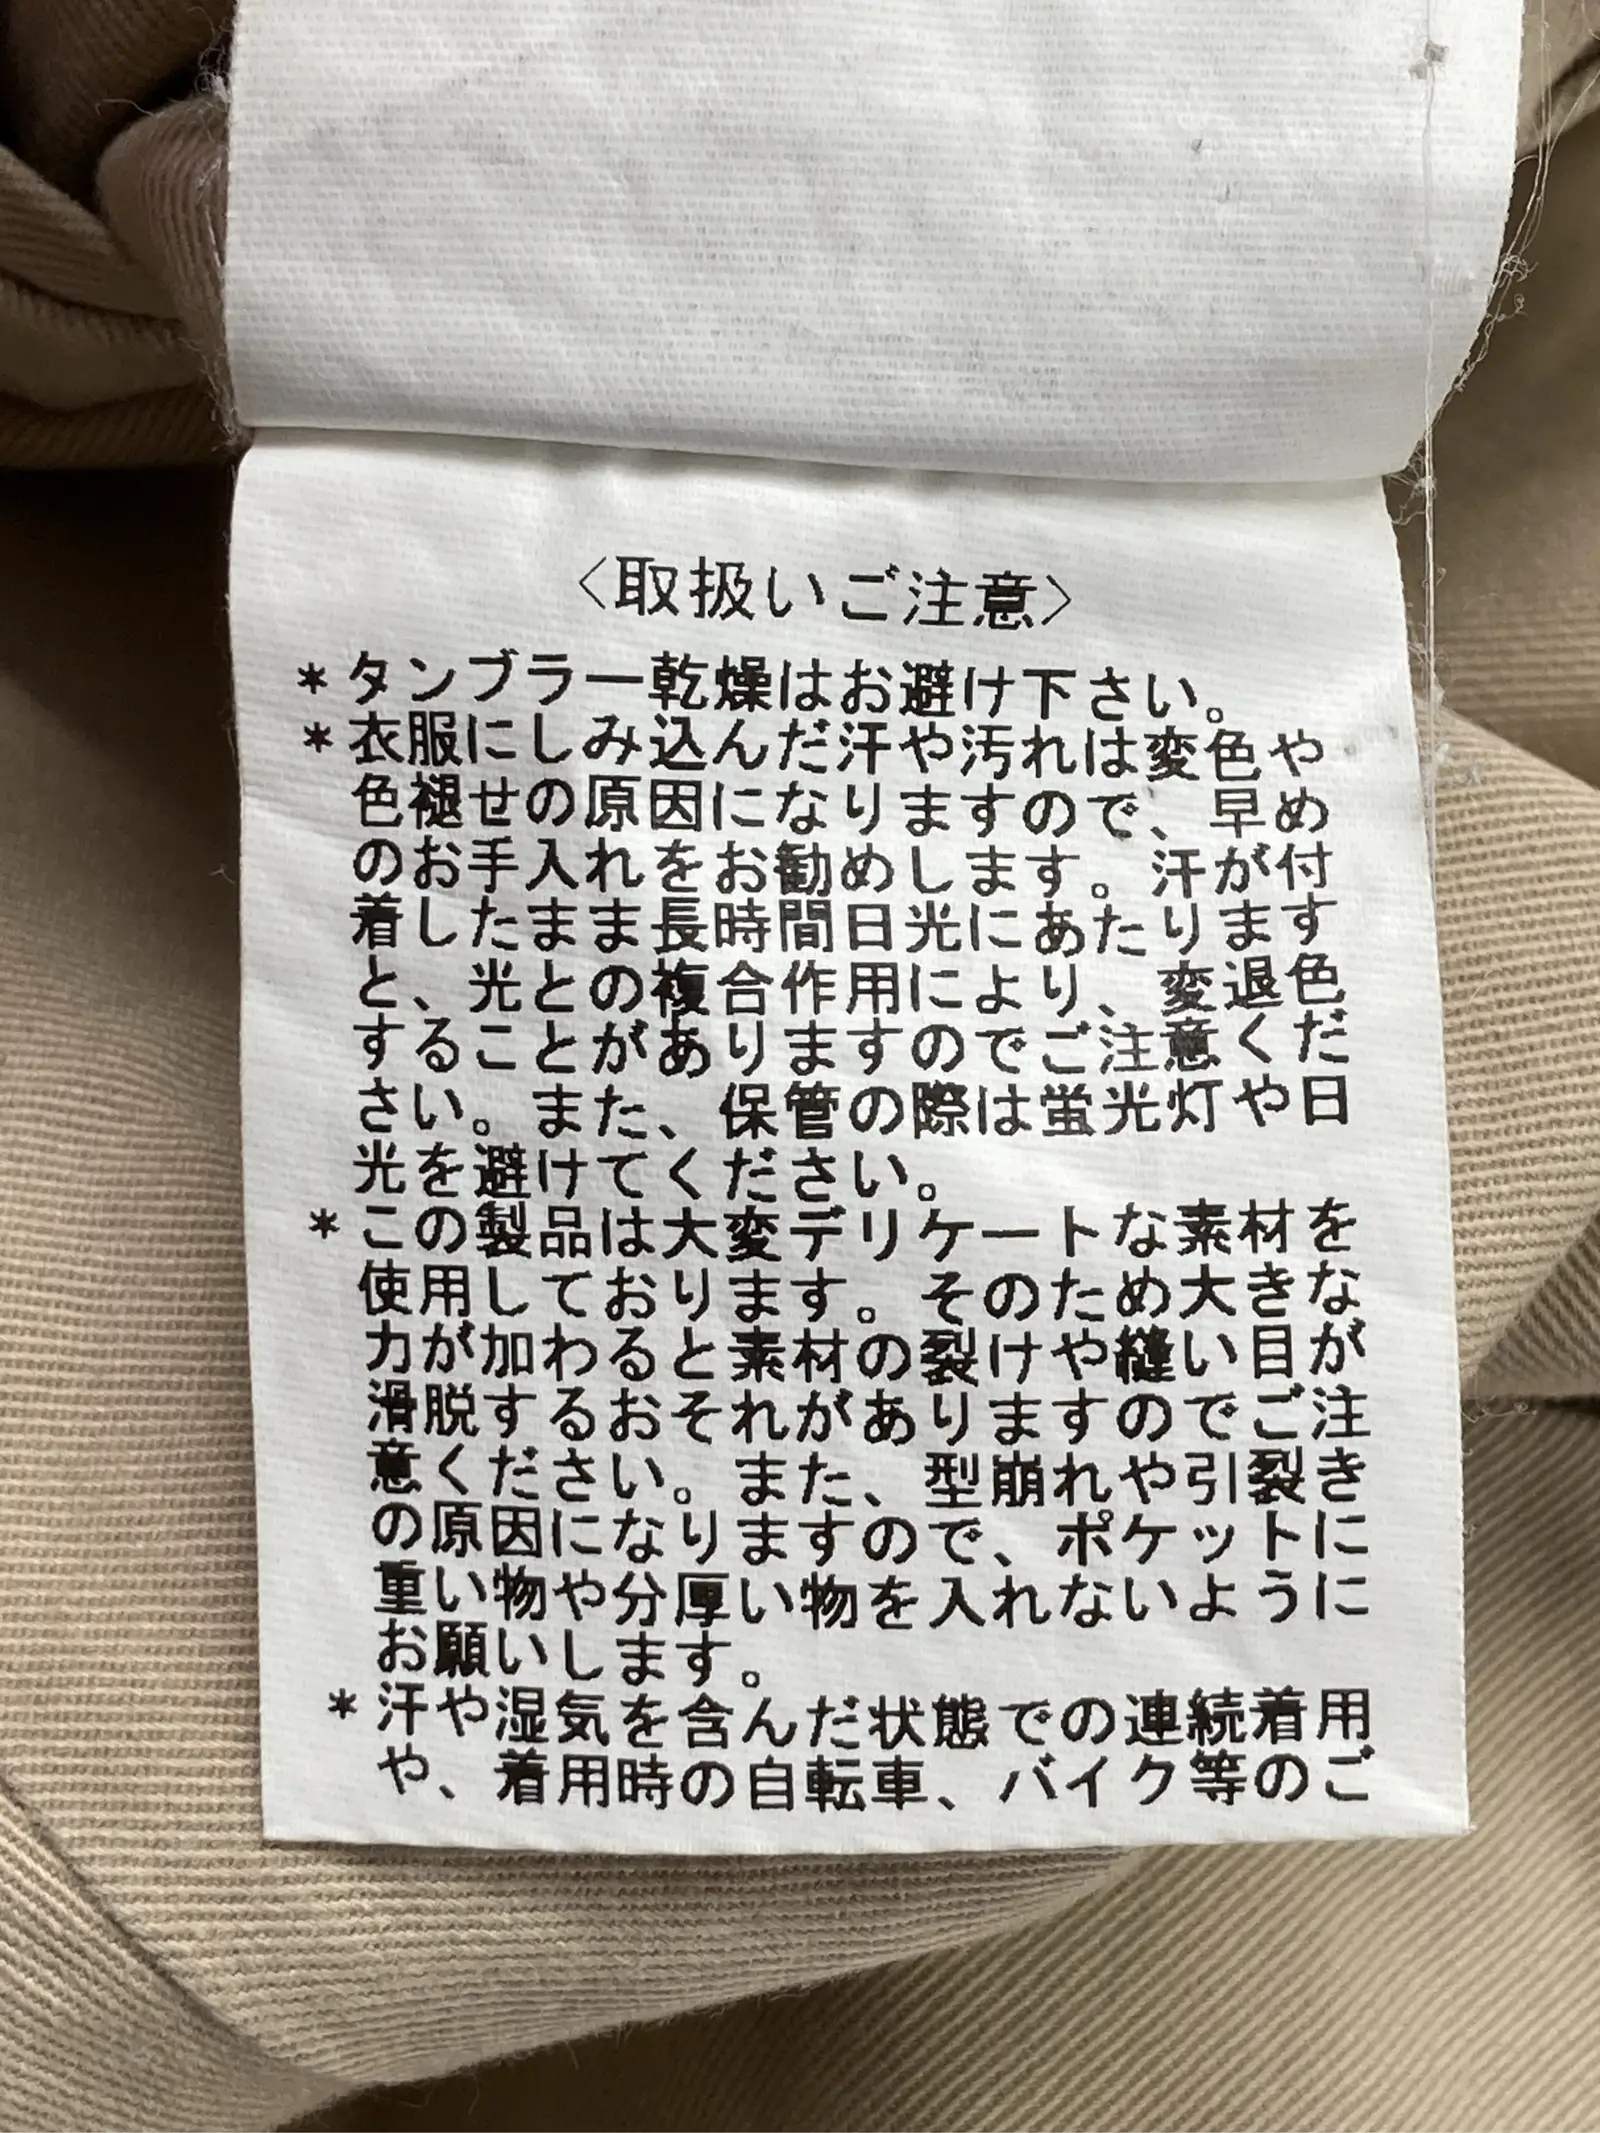 〈取扱いご注意〉
＊タンブラー乾燥はお避け下さい。
＊衣服にしみ込んだ汗や汚れは変色や
色褪せの原因になりますので、早め
のお手入れをお勧めします。汗が付
着したまま長時間日光にあたります
と、光との複合作用により、変退色
することがありますのでご注意くだ
さい。また、保管の際は蛍光灯や日
光を避けてください。
＊この製品は大変デリケートな素材を
使用しております。そのため大きな
力が加わると素材の裂けや縫い目が
滑脱するおそれがありますのでご注
意ください。また、型崩れや引裂き
の原因になりますので、ポケットに
重い物や分厚い物を入れないように
お願いします。
＊汗や湿気を含んだ状態での連続着用
や、着用時の自転車、バイク等のご